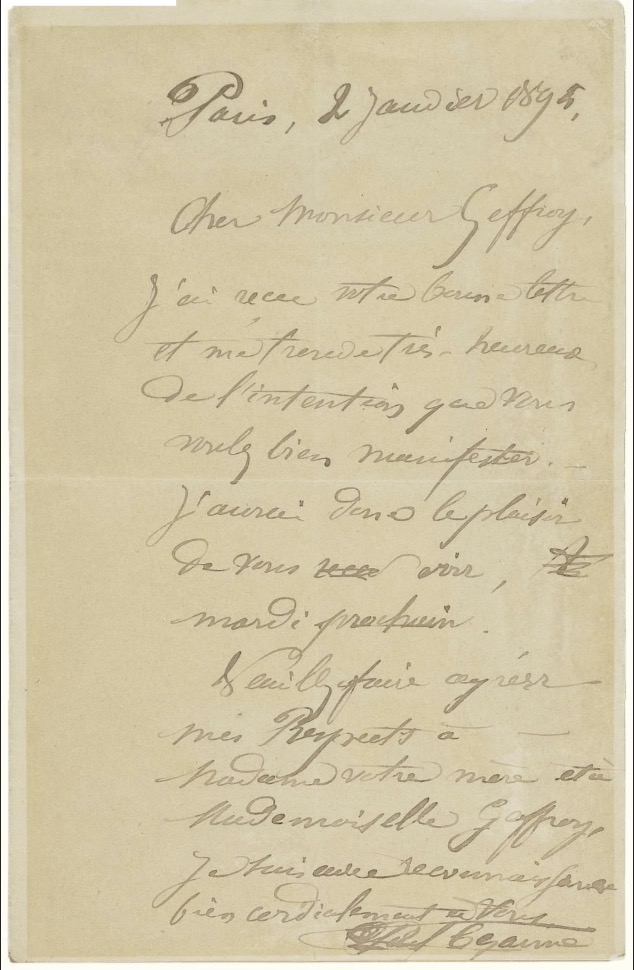 Paris, 2 Janvier 1895,
Cher Monsieur Geffroy,
J'ai reçu votre bonne lettre
et me trouve très-heureux
de l'intention que vous
voulez bien manifester. _
J'aurai donc le plaisir
de vous voir,
mardi prochain.
Veuillez faire agréer
mes Respects à
Madame votre mère et à
Mademoiselle Geffroy,
Je suis avec reconnaissance
bien cordialement à vous
Paul Cezanne